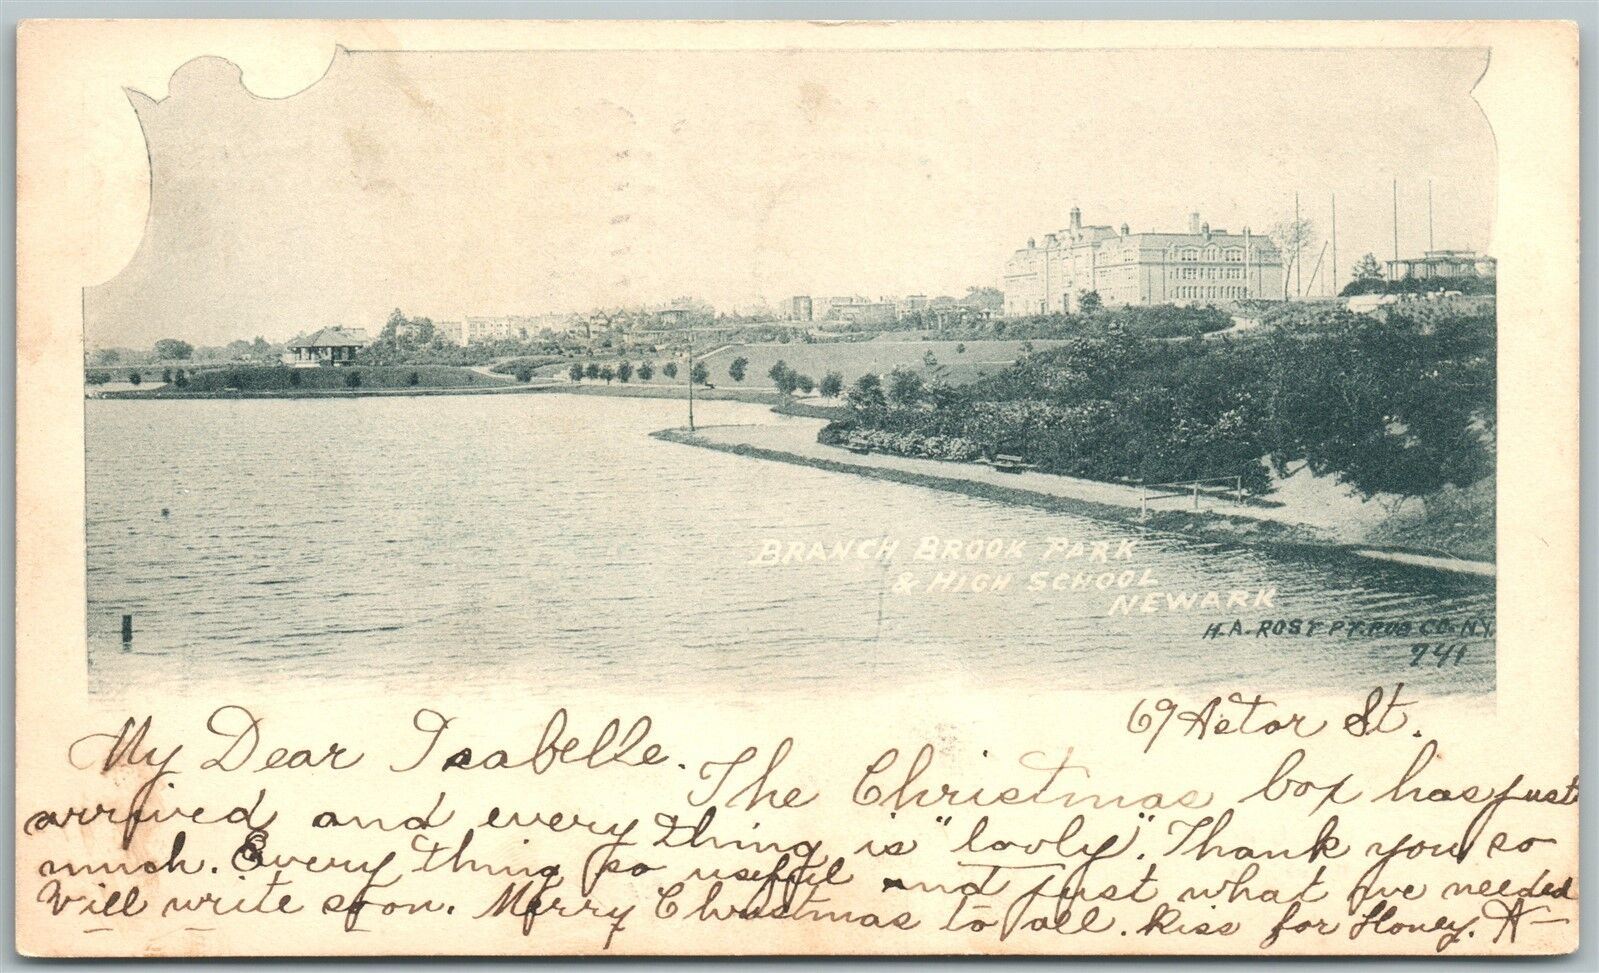 BRANCH BROOK PARK
& HIGH SCHOOL
NEWARK
H.A. ROST PT. PUB CO. N.Y.
741
69 Astor St.
My Dear Isabelle. The Christmas box has just
arrived and every thing is "lovly". Thank you so
much. Every thing so useful and just what we needed
Will write soon. Merry Christmas to all. Kiss for Honey. A-